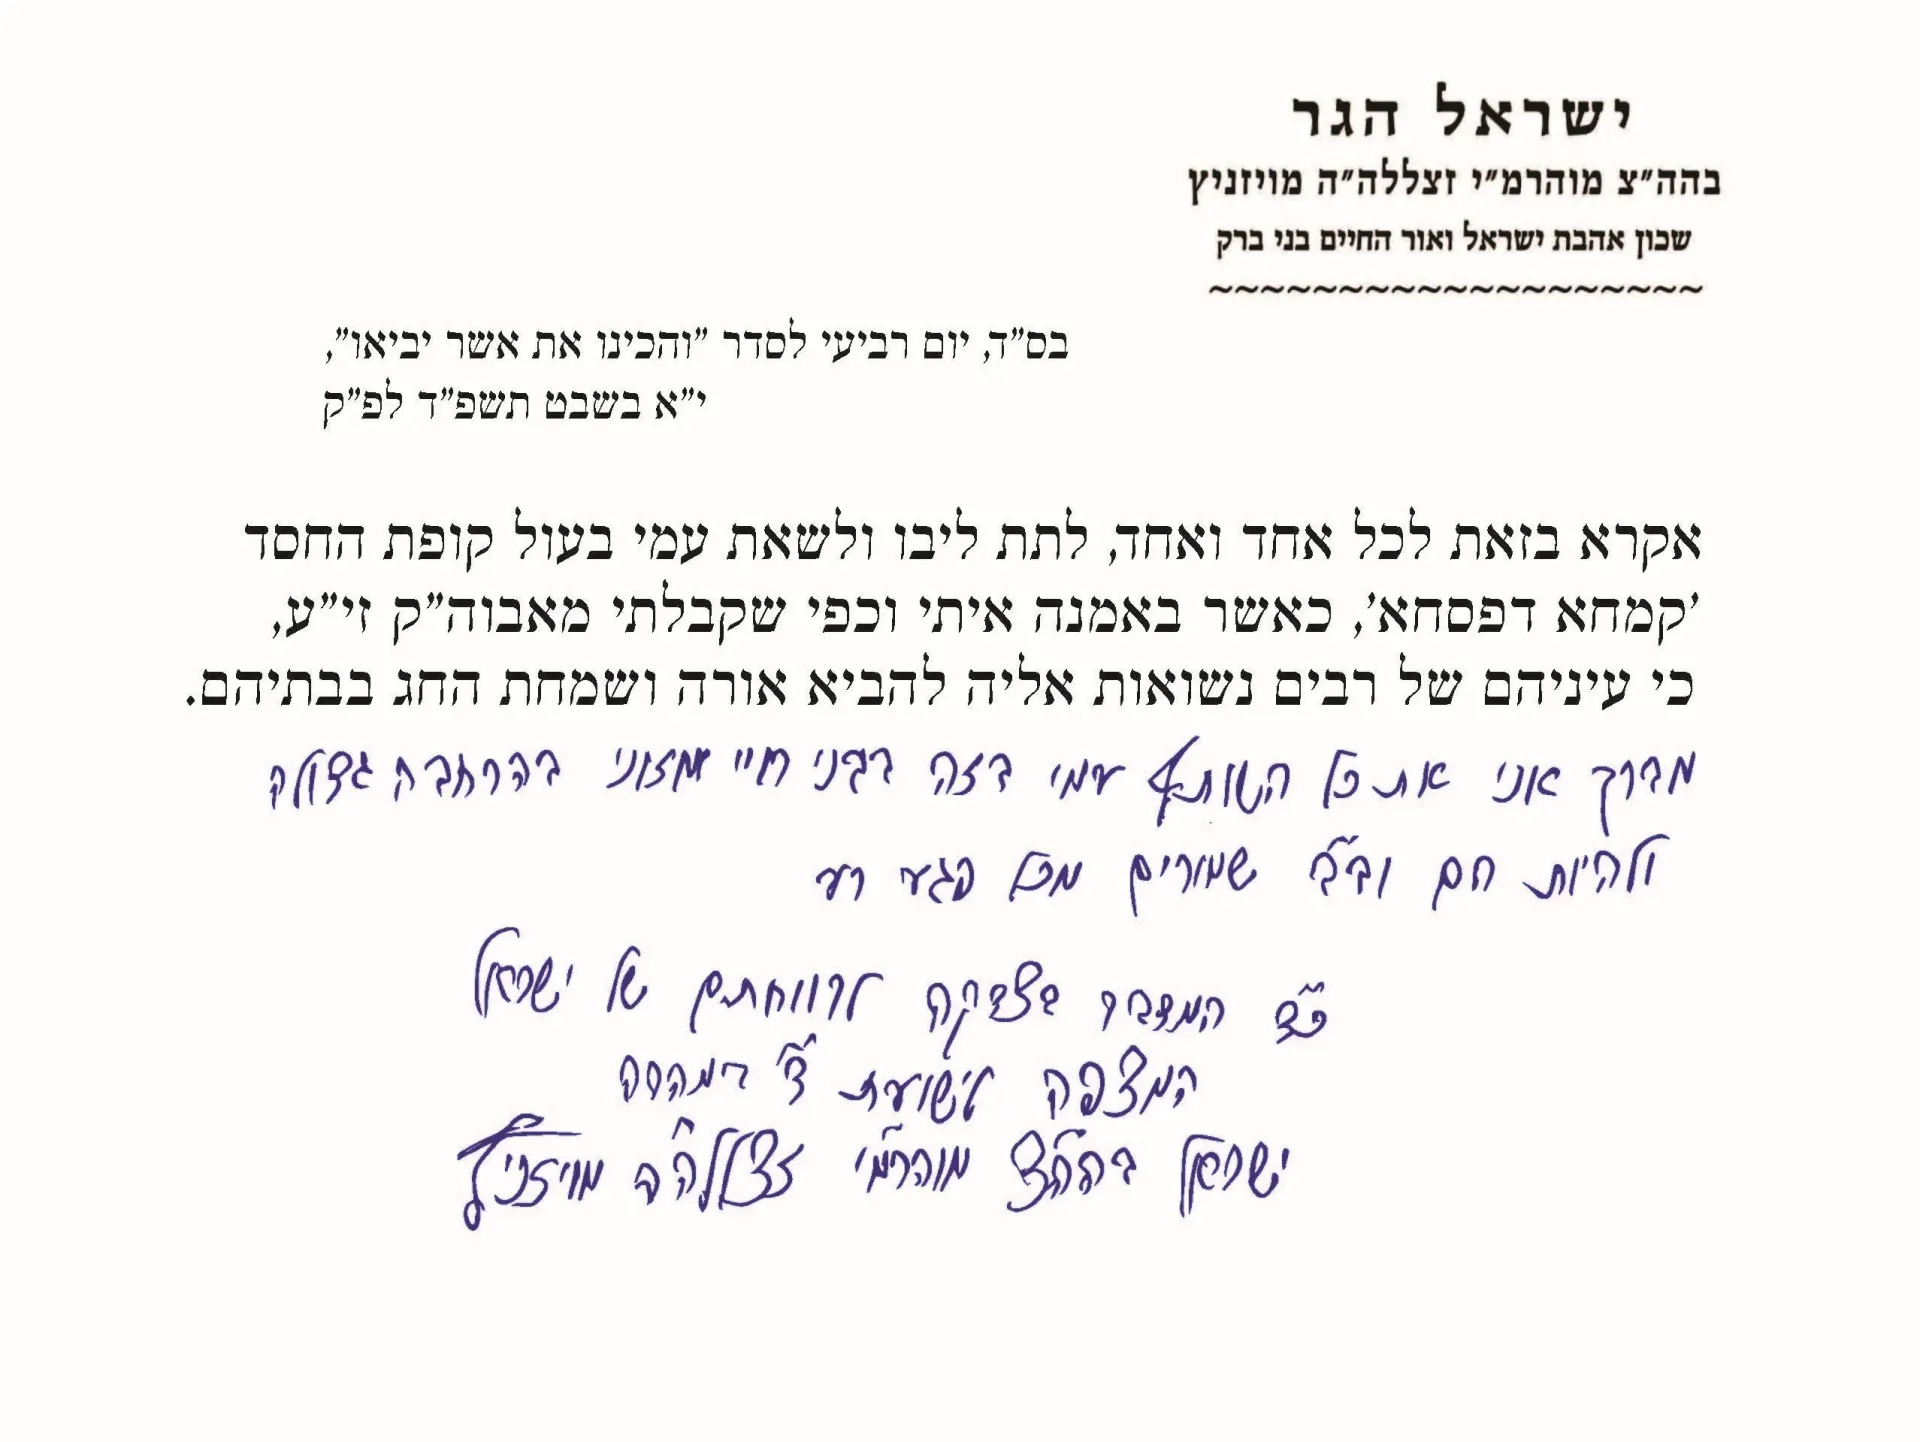 ישראל הגר
בהה"צ מוהרמ"י זצללה"ה מויזניץ
שכון אהבת ישראל ואור החיים בני ברק
~~~~~~~~~~~~~~~~~~~
בס"ד, יום רביעי לסדר "והכינו את אשר יביאו",
י"א בשבט תשפ"ד לפ"ק
אקרא בזאת לכל אחד ואחד, לתת ליבו ולשאת עמי בעול קופת החסד
'קמחא דפסחא', כאשר באמנה איתי וכפי שקבלתי מאבוה"ק זי"ע,
כי עיניהם של רבים נשואות אליה להביא אורה ושמחת החג בבתיהם.
מברך אני את כל השותף עמי בזה בבני חיי ומזוני בהרחבה גדולה
ולהיות הם וב"ב שמורים מכל פגע רע
כ"ד המדבר בצדקה לרווחתם של ישראל
המצפה לישועת ד' במהרה
ישראל בהה"צ מוהרמ"י זצללה"ה מויזניץ